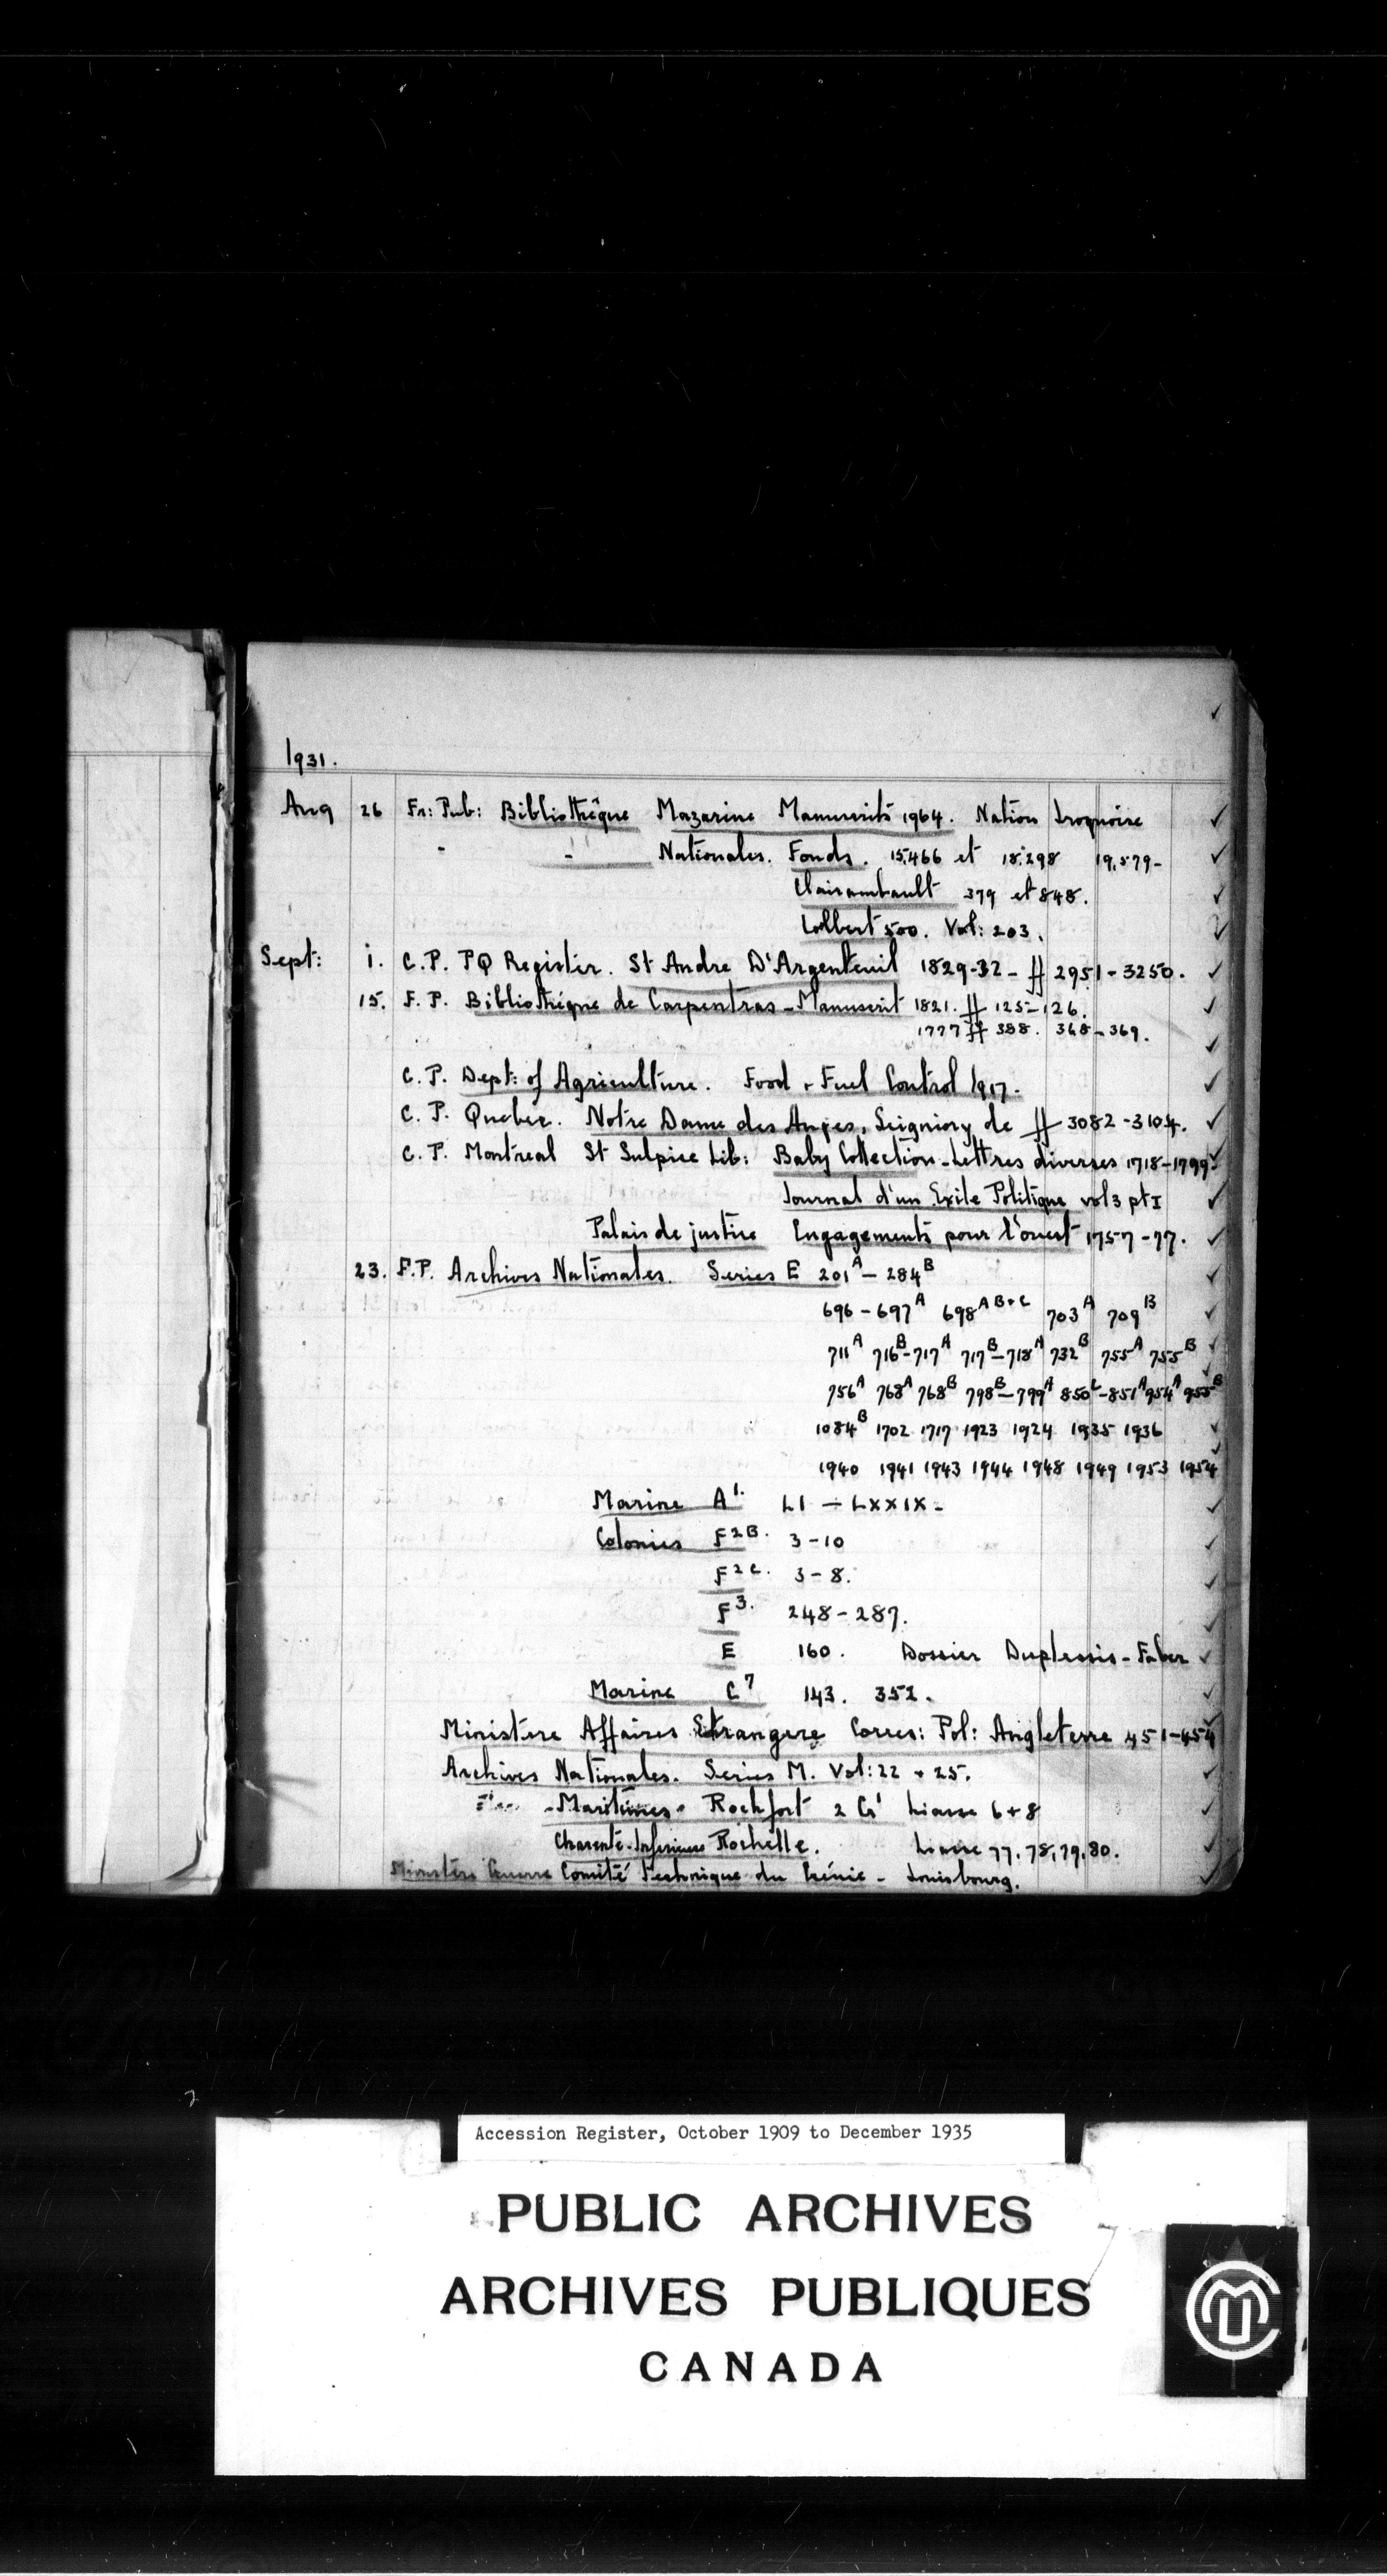 1931.
Aug 26 Fr: Pub: Bibliothêque Mazarine Manuscrits 1964. Nation Iroquoise ✓
" " Nationales. Fonds. 15,466 et 18,298 19,579- ✓
Clairambault 379 et 848. ✓
Colbert 500. Vol: 203. ✓
Sept: 1. C.P. PQ Register. St Andre D'Argenteuil 1829-32- ff 2951-3250. ✓
15. F.P. Bibliothéque de Carpentras - Manuscrit 1821. ff 125-126. ✓
1777 ff 388. 368-369. ✓
C.P. Dept: of Agriculture. Food + Fuel Control 1917. ✓
C.P. Quebec. Notre Dame des Anges, Seigniory de ff 3082-3104. ✓
C.P. Montreal St Sulpice Lib: Baby Collection - Lettres diverses 1718-1799. ✓
Journal d'un Exile Politique vol 3 pt I ✓
Palais de justice Engagements pour l'ouest 1757-77. ✓
23. F.P. Archives Nationales. Series E 201ᴬ - 284ᴮ ✓
696-697ᴬ 698ᴬ ᴮ⁺ᶜ 703ᴬ 709ᴮ ✓
711ᴬ 716ᴮ-717ᴬ 717ᴮ-718ᴬ 732ᴮ 755ᴬ 755ᴮ ✓
756ᴬ 768ᴬ 768ᴮ 798ᴮ-799ᴬ 850ᶜ-851ᴬ 954ᴬ 955ᴮ ✓
1084ᴮ 1702 1717 1923 1924 1935 1936 ✓
1940 1941 1943 1944 1948 1949 1953 1954 ✓
Marine A¹· LI - LXXIX - ✓
Colonies F²ᴮ· 3-10 ✓
F²ᶜ· 3-8. ✓
F³· 248-287. ✓
E 160. Dossier Duplessis-Faber ✓
Marine C⁷ 143. 352. ✓
Ministere Affaires Etrangere Corres: Pol: Angleterre 451-454 ✓
Archives Nationales. Series M. Vol: 22 + 25. ✓
- Maritimes - Rochfort 2 G¹ Liasse 6 + 8 ✓
Charente-Inferieure Rochelle. Liasse 77, 78, 79, 80. ✓
Ministère Guerre Comité Technique du Génie - Louisbourg. ✓
Accession Register, October 1909 to December 1935
PUBLIC ARCHIVES
ARCHIVES PUBLIQUES
CANADA